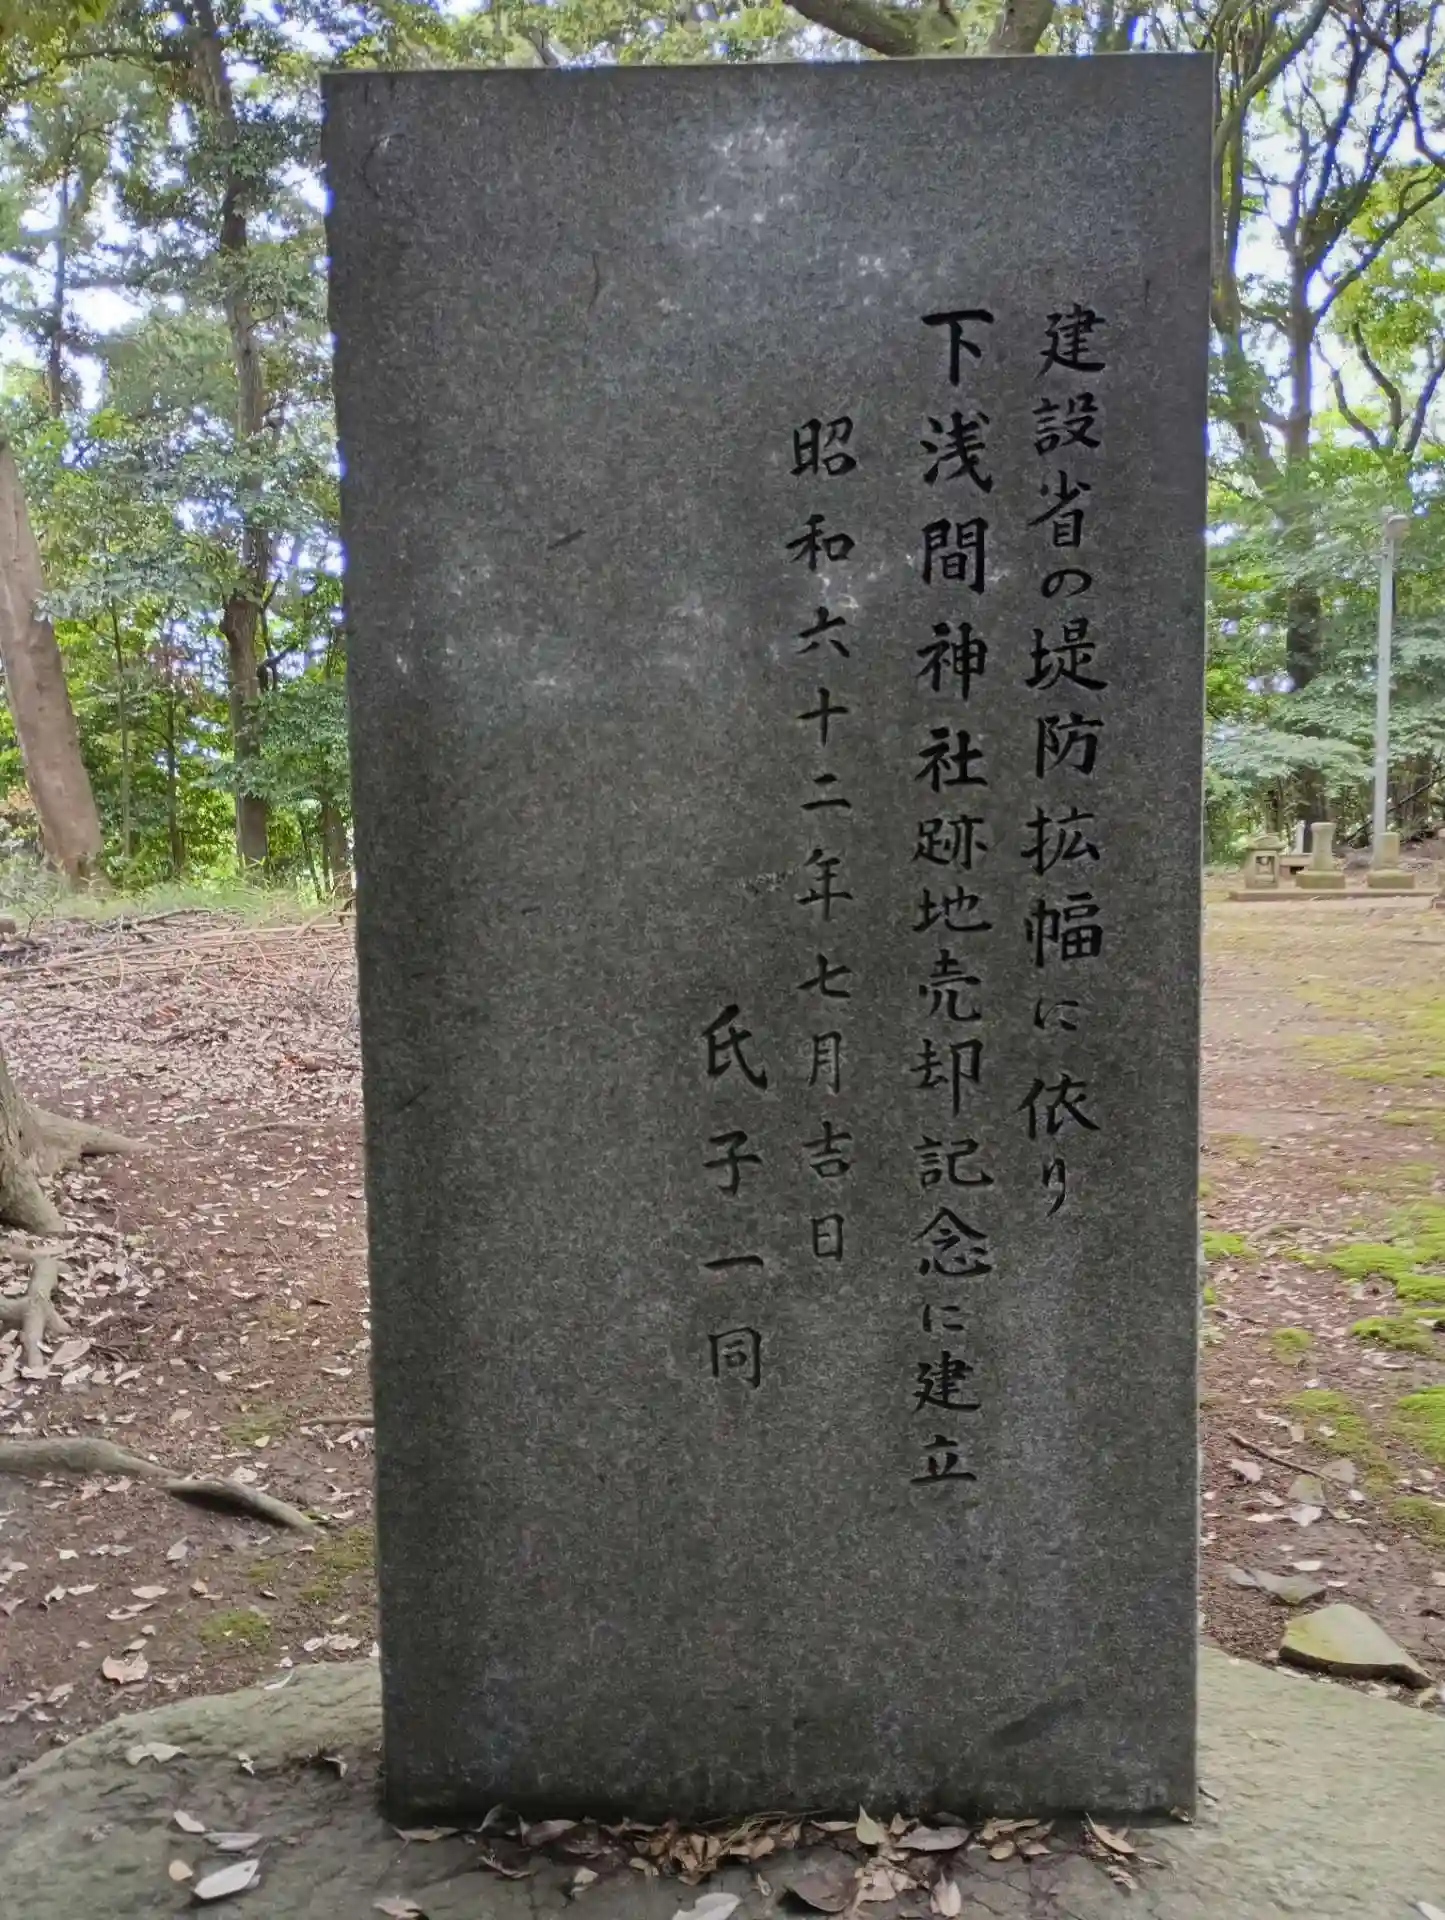 建設省の堤防拡幅に依り
下浅間神社跡地売却記念に建立
昭和六十二年七月吉日
氏子一同